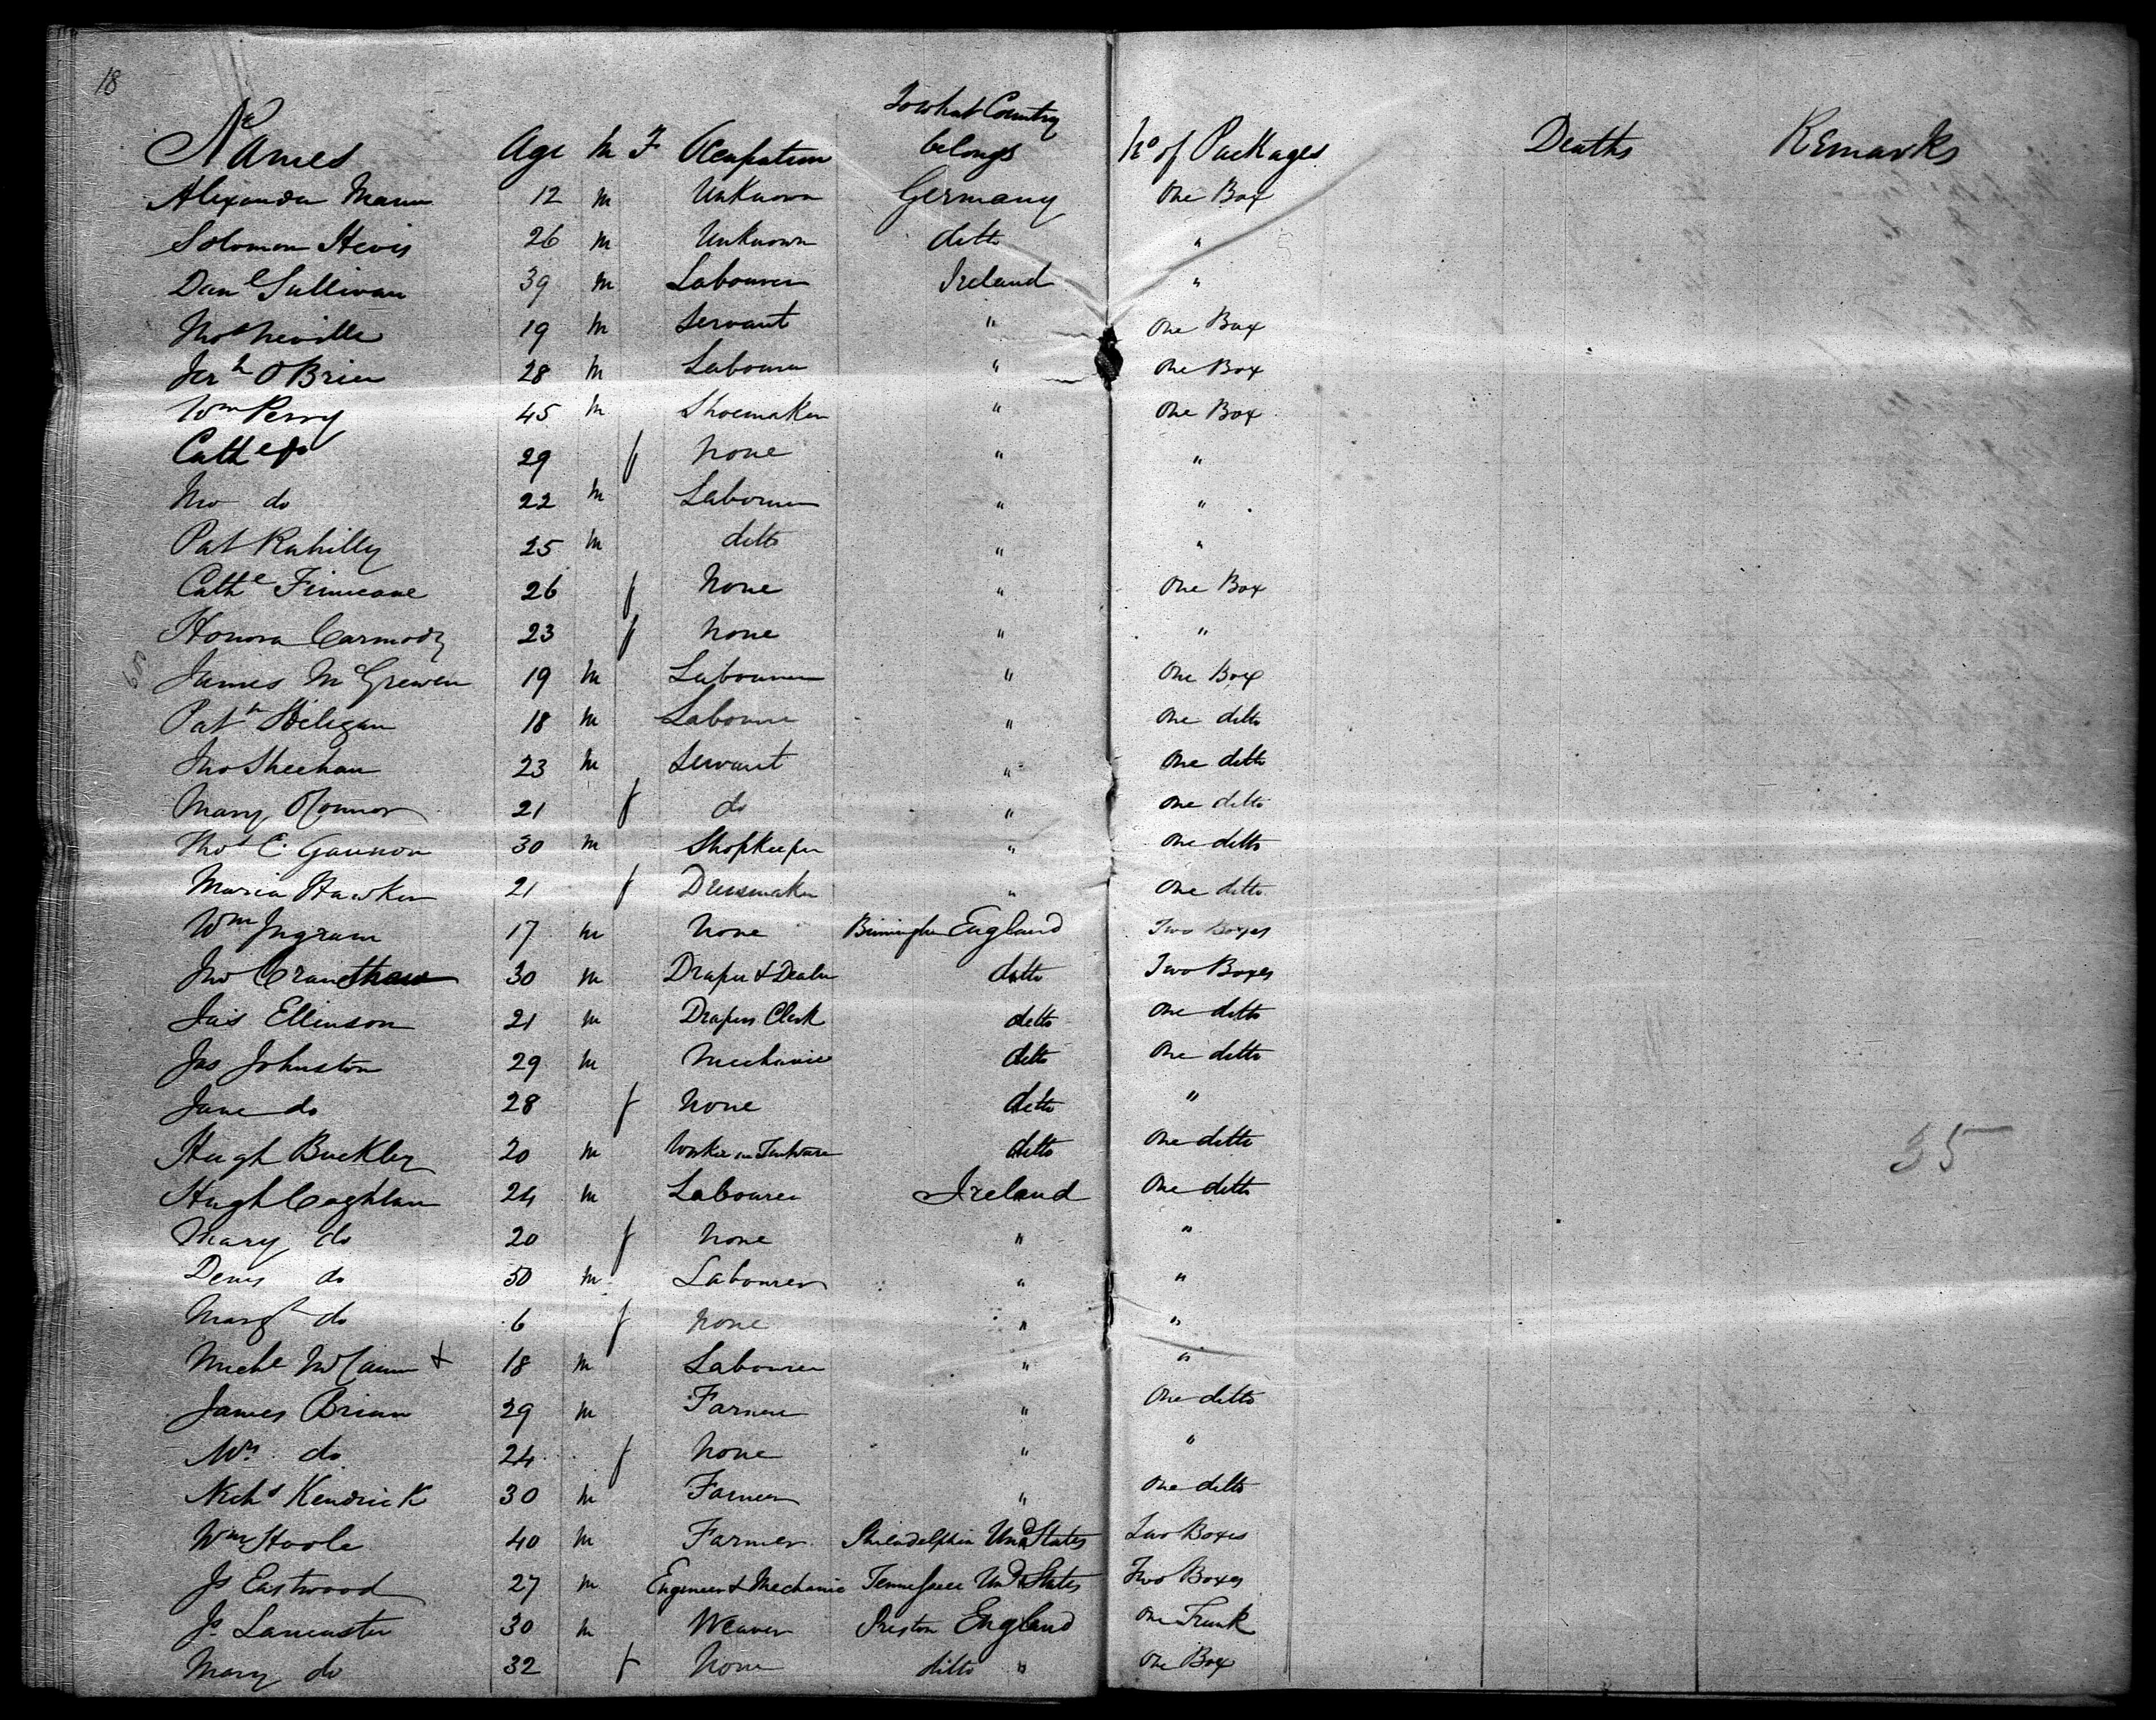 18
Names Age M F Ocupation To what Country belongs No of Packages Deaths Remarks
Alexander Mann 12 m Unknown Germany One Box
Solomon Hevis 26 m Unknown ditto "
Danl Sullivan 39 m Labourer Ireland "
Thos Neville 19 m Servant " One Box
Jerh O Brien 28 m Labourer " One Box
Wm Perry 45 m Shoemaker " One Box
Cathe do 29 f None " "
Jno do 22 m Labourer " "
Pat Rahilly 25 m ditto " "
Cathe Finucane 26 f None " One Box
Honora Carmody 23 f None " "
James McGrewen 19 m Labourer " One Box
Patk 18 m Labourer " One ditto
Jno Sheehan 23 m Servant " One ditto
Mary O'Connor 21 f do " One ditto
Thos C. Gannon 30 m Shopkeeper " One ditto
Maria Hawker 21 f Dressmaker " One ditto
Wm Ingram 17 m None Birmingham England Two Boxes
Jno Crawshaw 30 m Draper & Dealer ditto Two Boxes
Jas Ellinson 21 m Drapers Clerk ditto One ditto
Jas Johnston 29 m Mechanic ditto One ditto
Jane do 28 f None ditto "
Hugh Buckley 20 m Worker in Tinware ditto One ditto
35
Hugh Coghlan 24 m Labourer Ireland One ditto
Mary do 20 f None " "
Denis do 50 m Labourer " "
Margt do 6 f None " "
Michl McCann + 18 m Labourer " "
James Brian 29 m Farmer " One ditto
Mrs do 24 f None " "
Nichs Kendrick 30 m Farmer " One ditto
Wm Hoole 40 m Farmer Philadelphia Und States Two Boxes
Js Eastwood 27 m Engineer & Mechanic Tennessee Und States Two Boxes
Js Lancaster 30 m Weaver Preston England One Trunk
Mary do 32 f None ditto " One Box